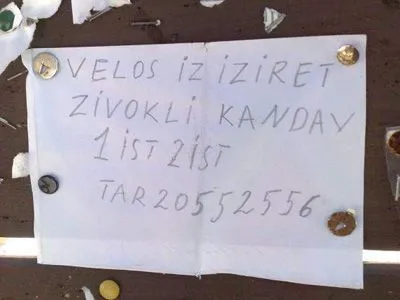 VELOS IZ IZIRET
ZIVOKLI KANDAV
1 IST 2 IST
TAR 20552556